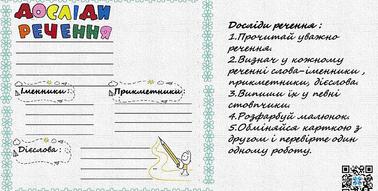 ДОСЛІДИ
РЕЧЕННЯ
Іменники :
Прикметники :
Дієслова :
Досліди речення :
1.Прочитай уважно
речення.
2.Визнач у кожному
реченні слова-іменники ,
прикметники, дієслова.
3.Випиши їх у певні
стовпчики.
4.Розфарбуй малюнок.
5.Обміняйся карткою з
другом і перевірте один
одному роботу.